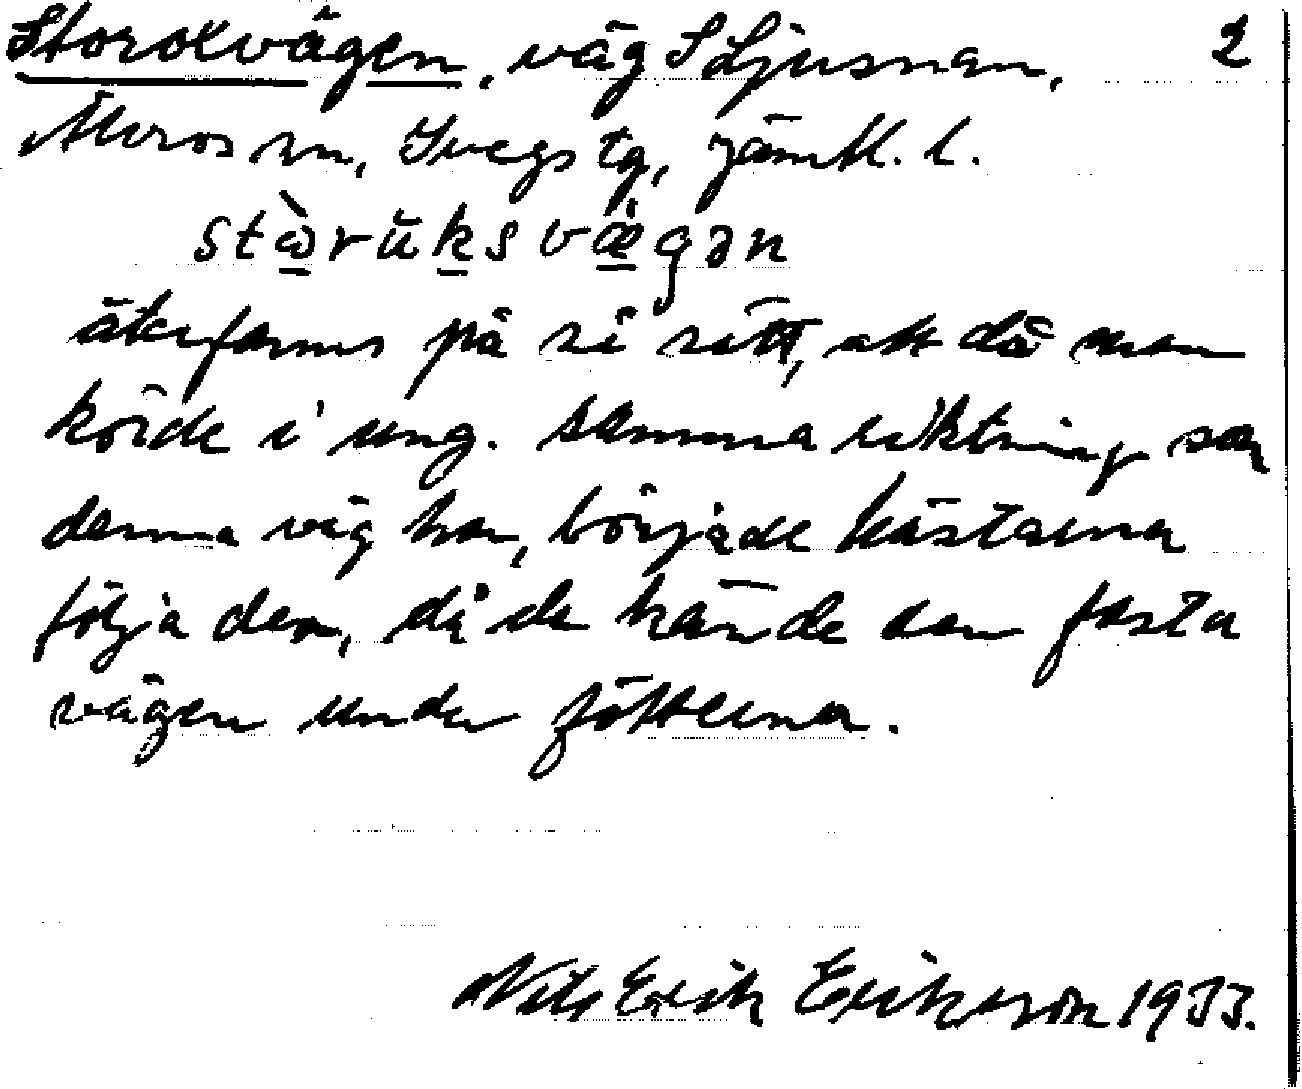 Storoxvägen, väg S Ljusnan, 2
Älvros sn, Svegs tg, Jämtl. l.
stɷ̀rŭksvæ̀gən
återfanns på så sätt, att då man
körde i ung. samma riktning som
denna väg har, började hästarna
följa den, då de kände den fasta
vägen under fötterna.
Nils Erik Erikson 1933.